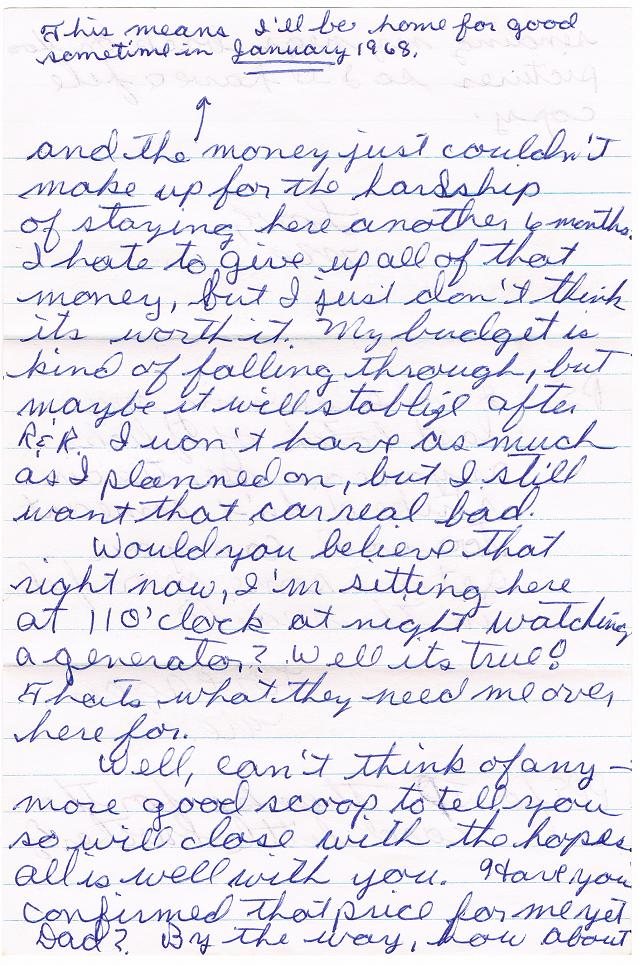 This means I'll be home for good
sometime in January 1968.
and the money just couldn't
make up for the hardship
of staying here another 6 months.
I hate to give up all of that
money, but I just don't think
its worth it. My budget is
kind of falling through, but
maybe it will stablize after
R&R. I won't have as much
as I planned on, but I still
want that car real bad.
Would you believe that
right now, I'm sitting here
at 11 O'clock at night watching
a generator? Well its true!
Thats what they need me over
here for.
Well, can't think of any-
more good scoop to tell you
so will close with the hopes
all is well with you. Have you
confirmed that price for me yet
Dad? By the way, how about